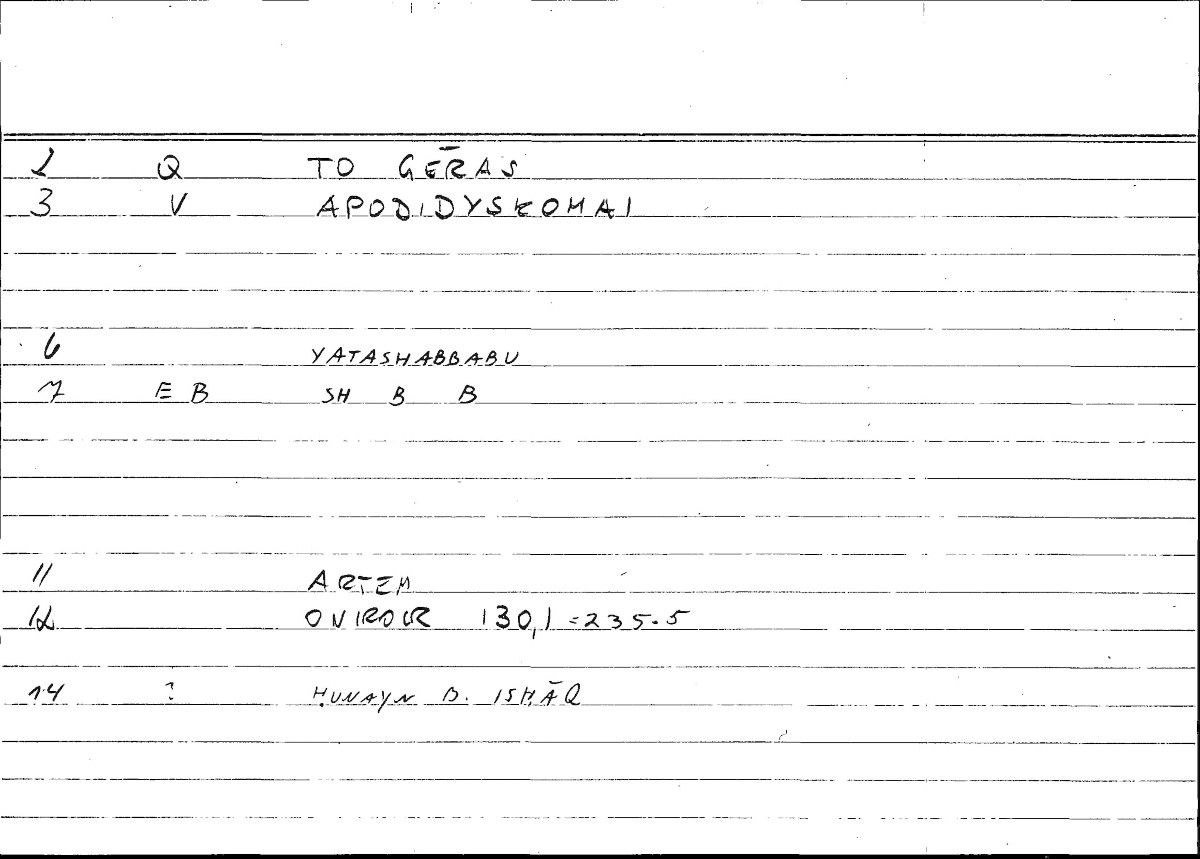 2 Q TO GĒRAS
3 V APODIDYSKOMAI
6 YATASHABBABU
7 EB SH B B
11 ARTEM
12 ONIROCR 130,1=235.5
14 ? ḤUNAYN B. ISḤĀQ